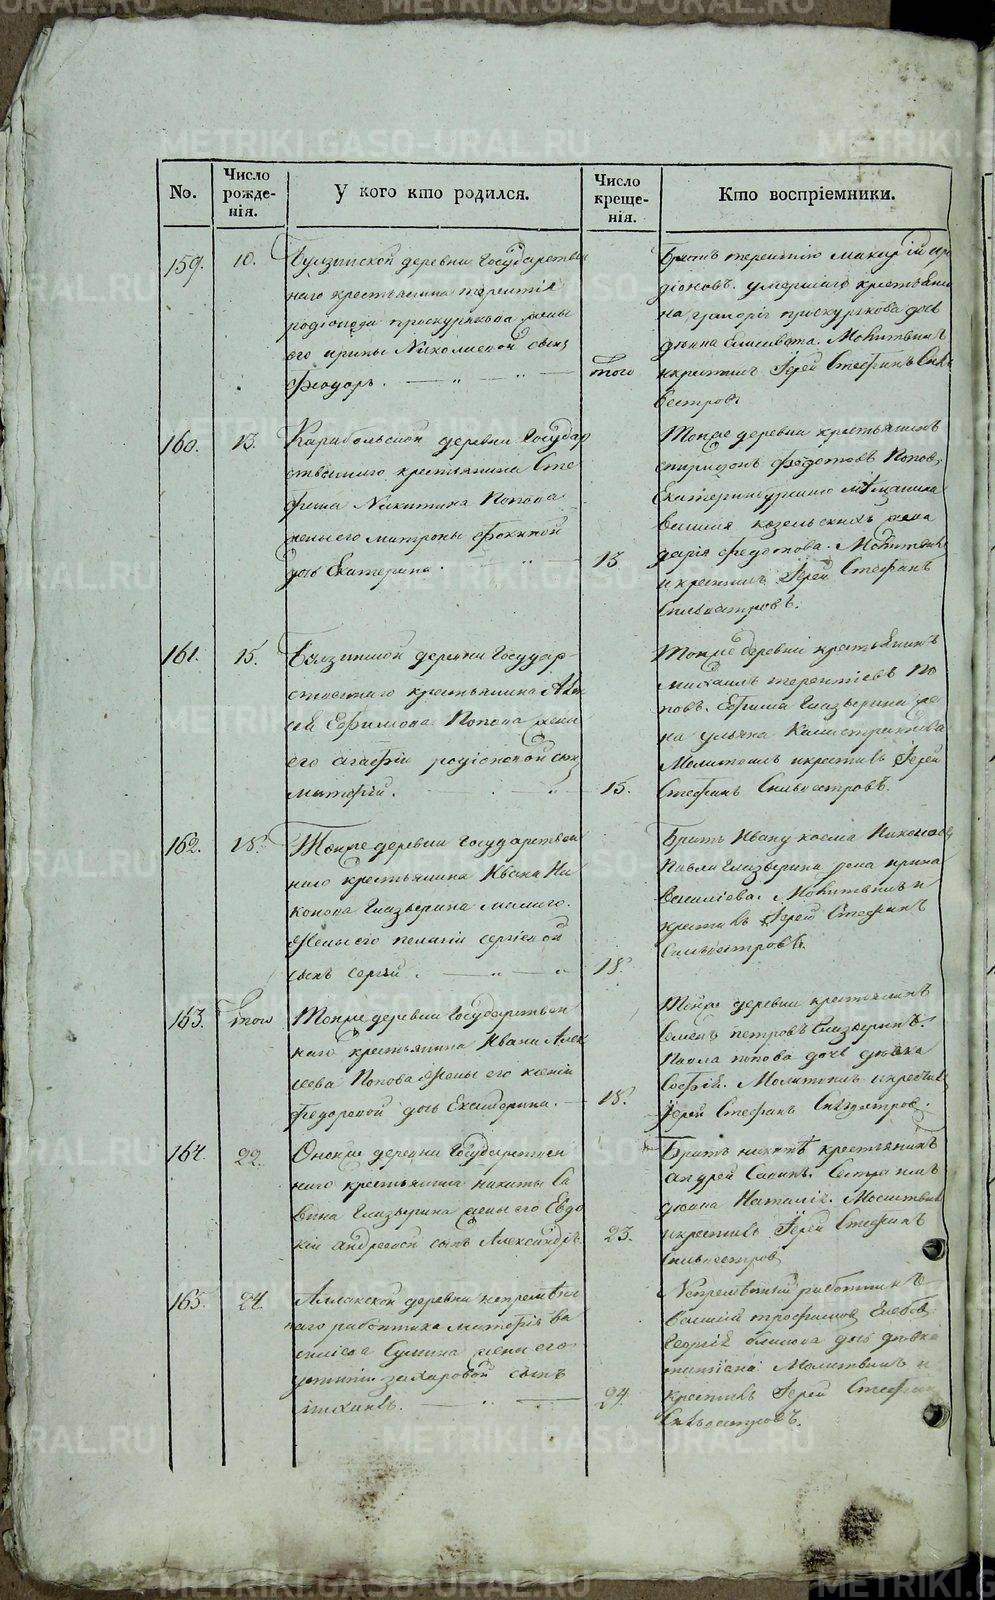 No.
Число рожде- нія.
У кого кто родился.
Число креще- нія.
Кто воспріемники.
159.
10.
деревни Государствен
наго крестьянина терентія
родіонова проскурякова жены
его ирины Николаевой сынъ
Феодоръ.
того
Братъ терентію макарій иро
діоновъ. умершаго крестьяни
на григорія проскурякова дочь
дѣвица Елисавета. Молитвилъ
и крестилъ Іерей Стефанъ Силь
вестровъ
160.
13.
Карабольской деревни Государ
ственнаго крестьянина Сте
фана Никитина Попова
жены его матроны Фокиной
дочь Екатерина.
13
Тойже деревни крестьянинъ
спиридонъ федотовъ Поповъ,
Екатеринбургскаго мѣщанина
василія козельскихъ жена
дарія федотова. Молитвилъ
и крестилъ Іерей Стефанъ
Сильвестровъ.
161.
15.
деревни Государ-
ственнаго крестьянина Алек
сѣя Ефимова Попова жены
его агафіи родіоновой сынъ
матфѣй.
15.
Тойже деревни крестьянинъ
михаилъ терентіевъ По
повъ. Ефима Глазырина же
на ульяна Калистратова
Молитвилъ и крестилъ Іерей
Стефанъ Сильвестровъ.
162.
18.
Тойже деревни Государствен
наго крестьянина Ивана Ни
конова Глазырина малаго.
Жены его пелагіи сергѣевой
сынъ сергѣй.
18.
Братъ Ивану косма Никоновъ
Павла Глазырина жена ирина
Василіева. Молитвилъ и
крестилъ Іерей Стефанъ
Сильвестровъ.
163.
того
Тойже деревни Государствен
наго крестьянина Ивана Алек
сѣева Попова Жены его ксеніи
Федоровой дочь Екатерина.
18.
Тойже деревни крестьянинъ
Семенъ петровъ Глазыринъ.
Павла попова дочь дѣвка
Софія. Молитвилъ и крестилъ
Іерей Стефанъ Сильвестровъ.
164.
22.
Онойже деревни Государствен
наго крестьянина никиты Са
вина Глазырина жены его Евдо
кіи андреевой сынъ Александръ.
23.
Братъ никитѣ крестьянинъ
андрей Савинъ. Сестра имъ
дѣвица Наталія. Молитвилъ
и крестилъ Іерей Стефанъ
Сильвестровъ
165.
24.
деревни непремѣн
наго работника матфѣя ва
силіева Сулина жены его
устиніи захаровой сынъ
24.
Непремѣнный работникъ
Василій трофимовъ Глебовъ.
Георгія блинова дочь дѣвка
татіана. Молитвилъ и
крестилъ Іерей Стефанъ
Сильвестровъ.
METRIKI.GASO-URAL.RU